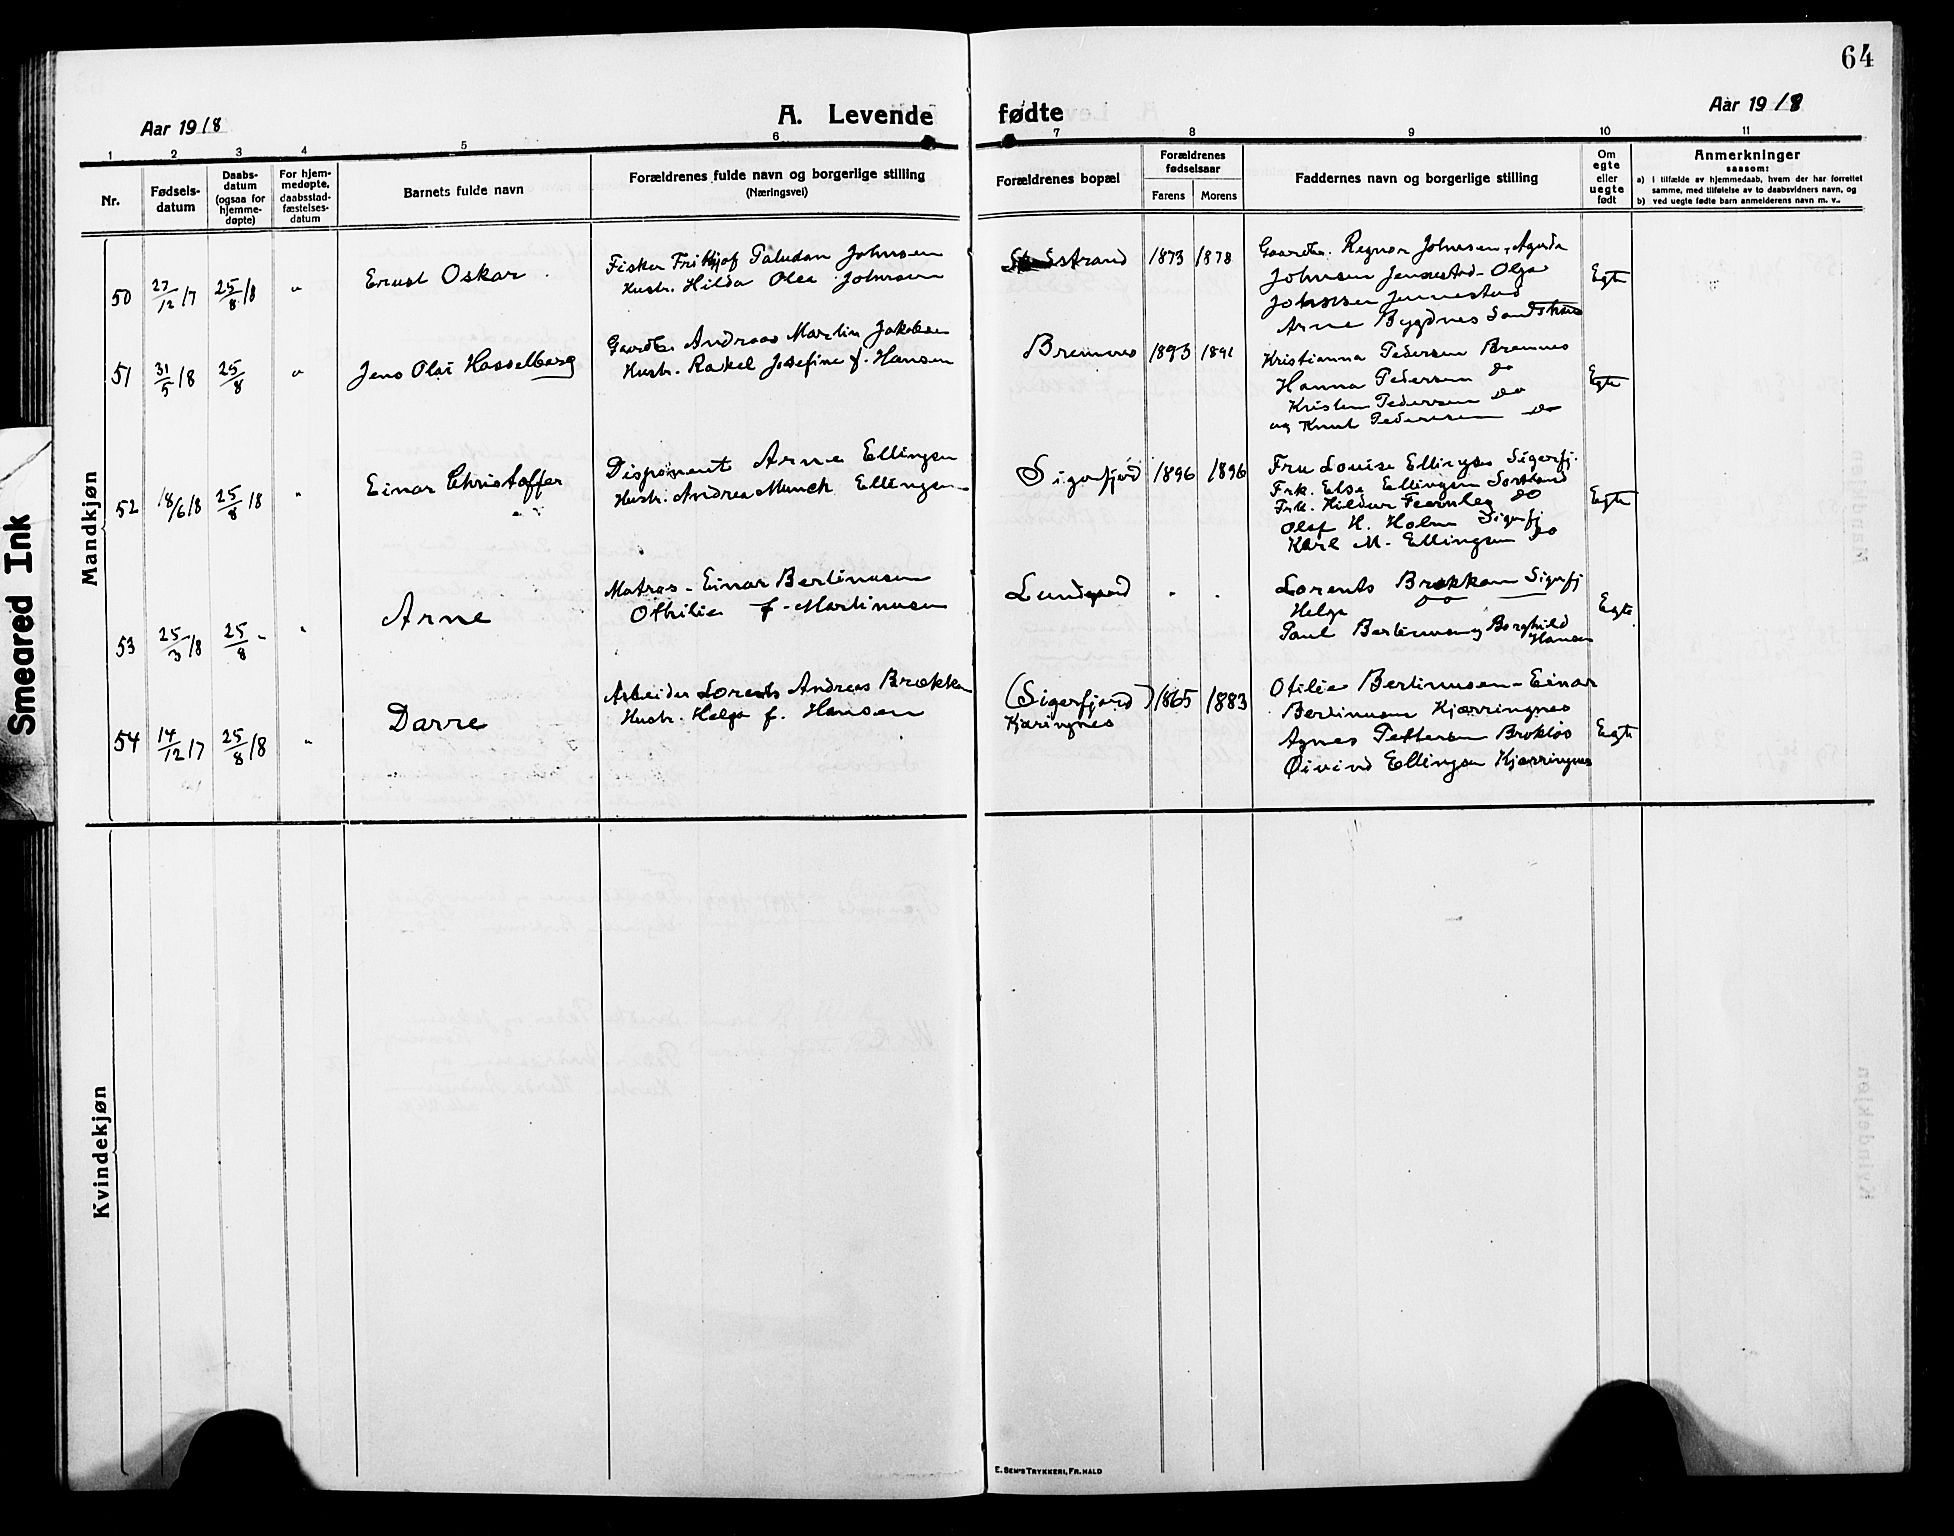 64
Aar 1918
A. Levende fødte
Aar 1918
1 2 3 4 5 6 7 8 9 10 11
Nr.
Fødsels-
datum
Daabs-
datum
(ogsaa for
hjemme-
døpte)
For hjem-
medøpte,
daabsstad-
fæstelses-
datum
Barnets fulde navn
Forældrenes fulde navn og borgerlige stilling
(Næringsvei)
Forældrenes bopæl
Forældrenes
fødselsaar
Farens Morens
Faddernes navn og borgerlige stilling
Om
egte
eller
uegte
født
Anmerkninger
saasom:
a) i tilfælde av hjemmedaab, hvem der har forrettet
samme, med tilføielse av to daabsvidners navn, og
b) ved uegte fødte barn anmelderens navn m. v..
Mandkjøn
50 27/12 17 25/8 18 "
Ernst Oskar
Fisker Frithjof Paludan Johnsen
Hustr. Hilda Olea Johnsen
strand 1873 1878
Gaardbr. Regnor Johnsen, Agnda
Johnsen Jennestad - Olga
Johnsen Jennestad
Arne Bygdnes
Egte
51 31/5 18 25/8 "
Jens Olai Hasselberg
Gaardbr. Andreas Martin Jakobsen
Hustr. Rakel Josefine f. Hansen
Bremnes 1893 1891
Kristianna Pedersen Bremnes
Hanna Pedersen do
Kristen Pedersen do
og Knut Pedersen do
Egte
52 18/6 18 25/8 18 "
Einar Christoffer
Disponent Arne Ellingsen
Hustr. Andrea Munch Ellingsen
Sigerfjord 1896 1896
Fru Louise Ellingsen Sigerfj.
Frk. Else Ellingsen Sortland
Frk. Hildur Fearnley do
Olaf H. Holm Sigerfj
Karl M. Ellingsen do
Egte
53 25/3 18 25/8 - "
Arne
Matros - Einar Bertinusen
Othilie f. Martinusen
Lundgard - -
Lorents Brækkan Sigerfj
Helga do
Paul Bertinusen, Borghild
Hansen
Egte.
54 14/12 17 25/8 18 "
Darre
Arbeider Lorents Andreas Brækka
Hustr. Helga f. Hansen
(Sigerfjord) 1865 1883
Kjæringnes
Otilie Bertinusen - Einar
Bertinusen Kjærringnes
Agnes Pettersen Brokløs
Øivind Ellingsen Kjærringnes
Egte
Kvindekjøn
Smeared Ink
E. Sem's Trykkeri, Fr.hald